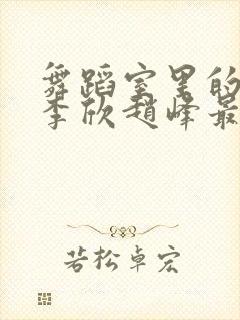 舞蹈室里的
李欣赵峰最
若松卓宏